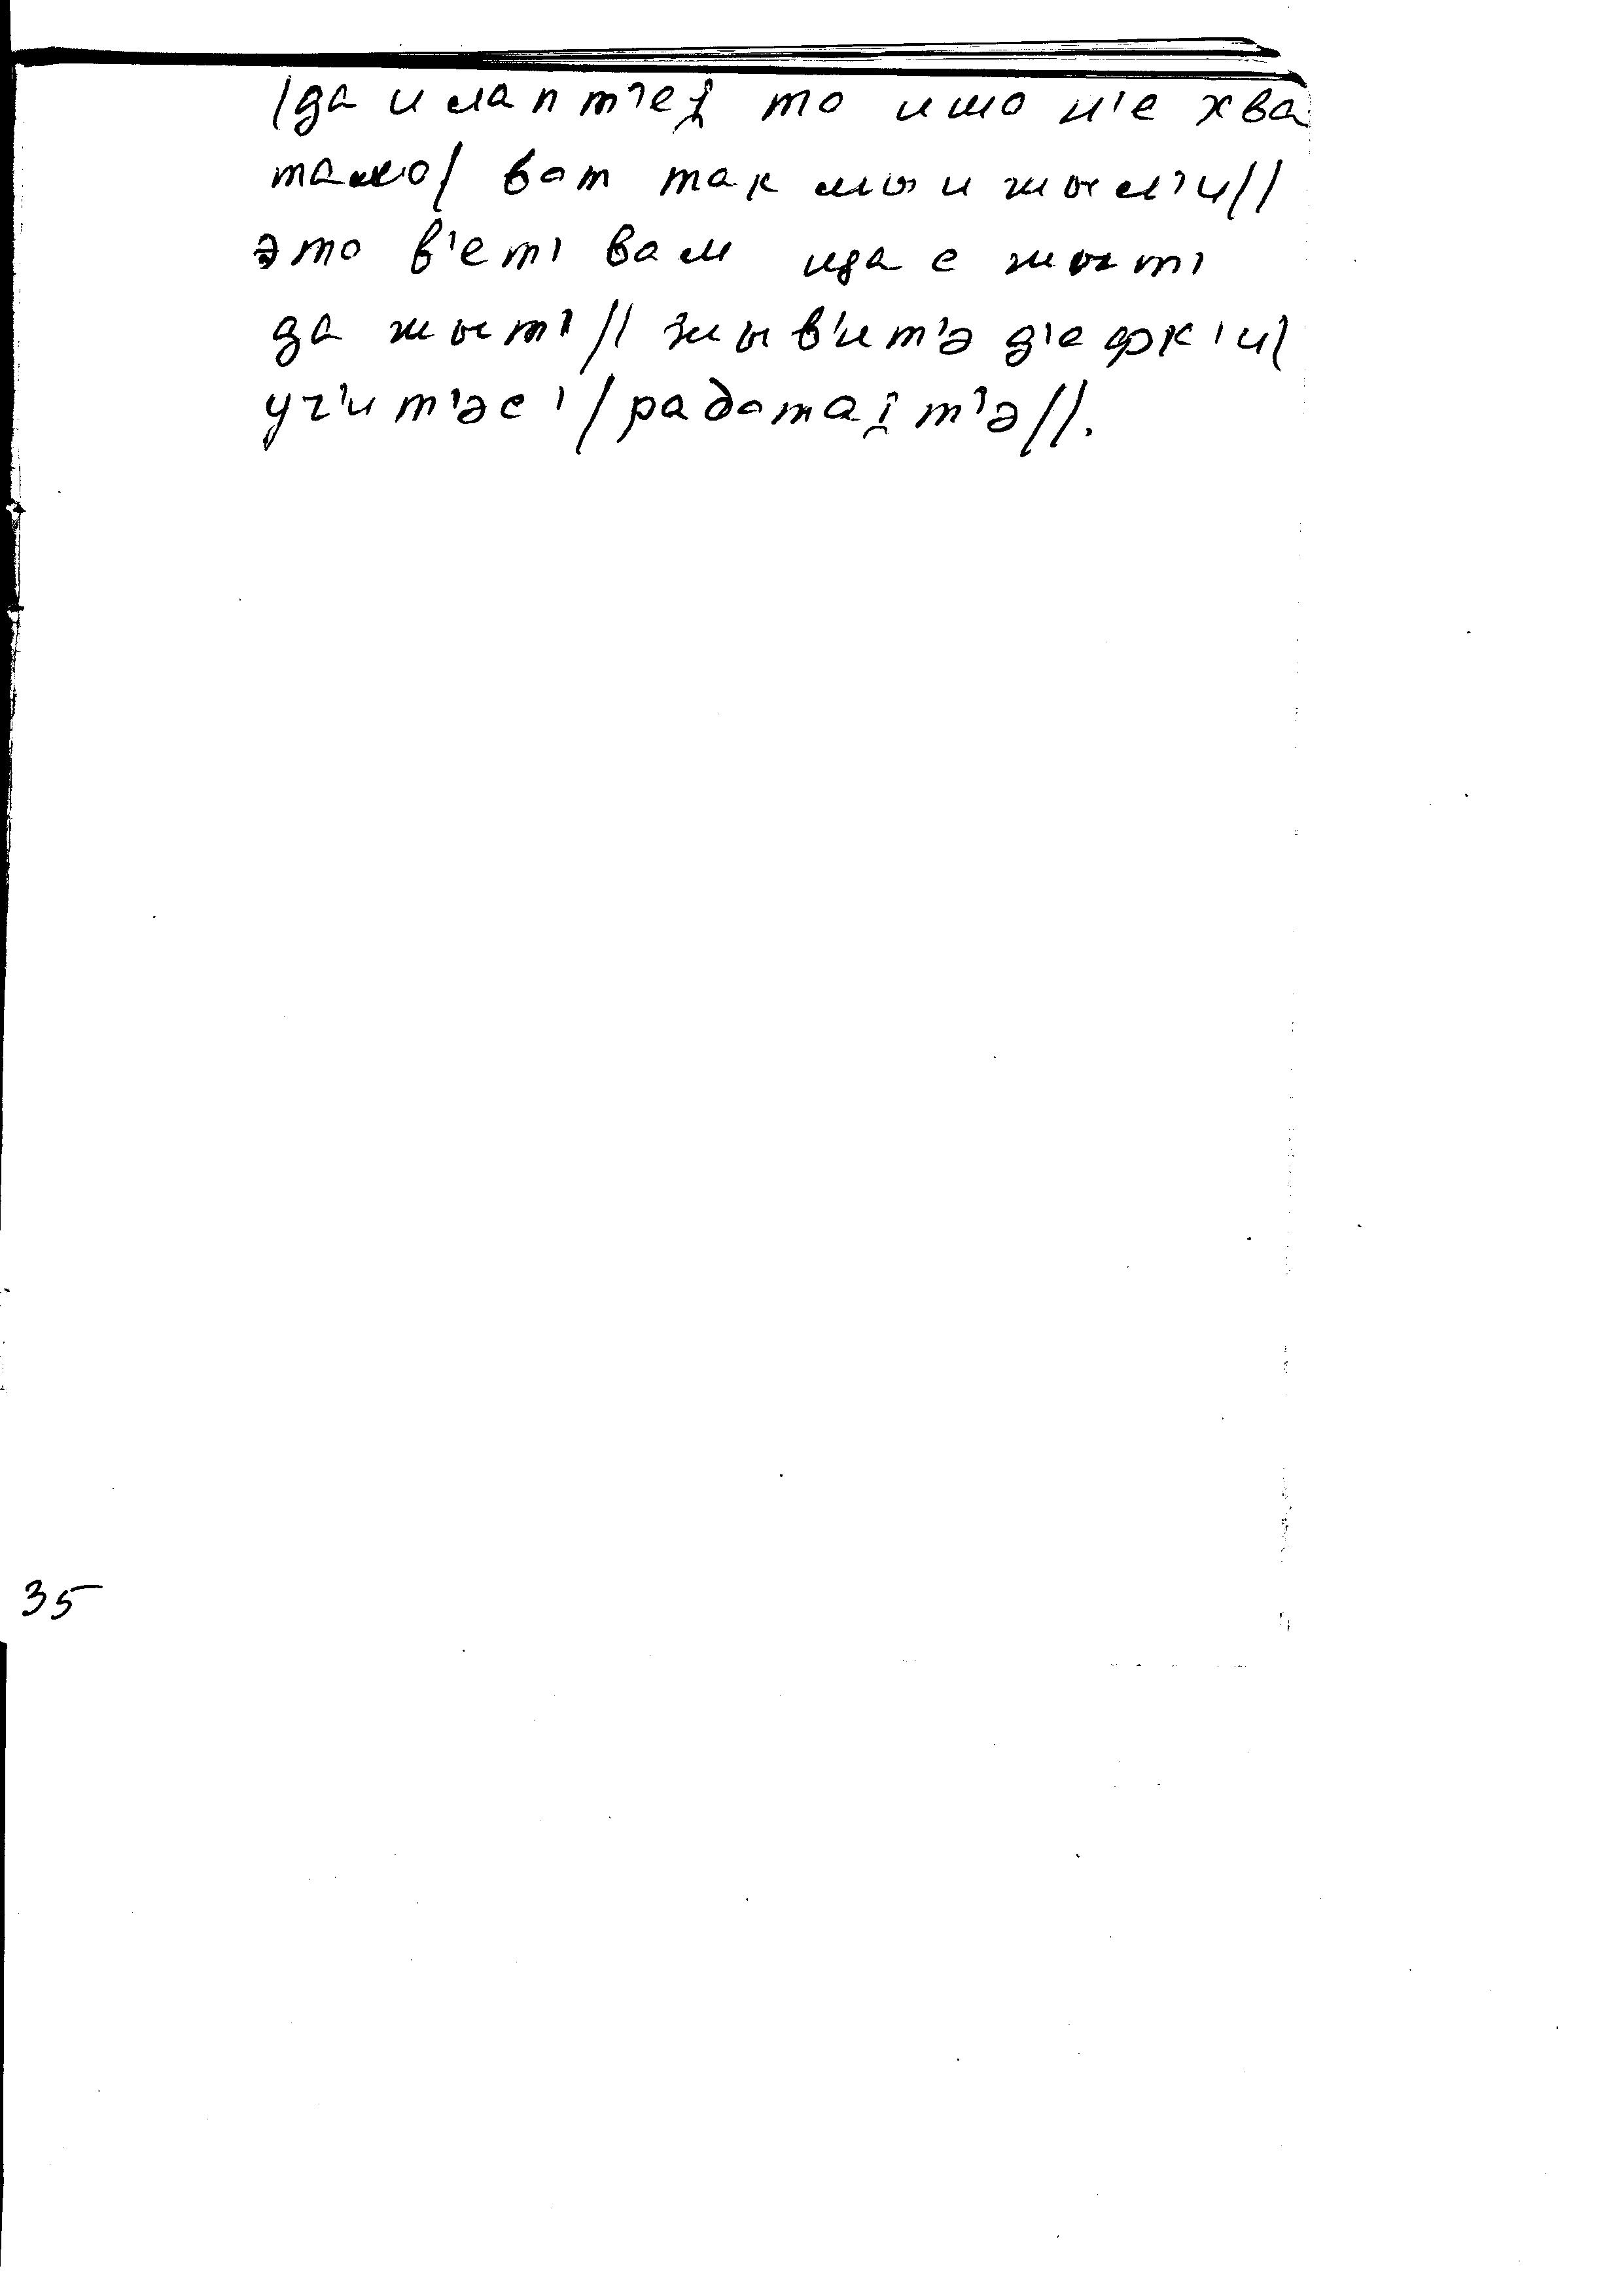 /да и лап т'еį то ишо н'е хва
тало/ вот так мы и жыл'и//
это в'ет' вам ида е жыт'
да жыт'// жыв'ит'э д'ефк'и/
уч'ит'эс'/работаįт'э//.
35